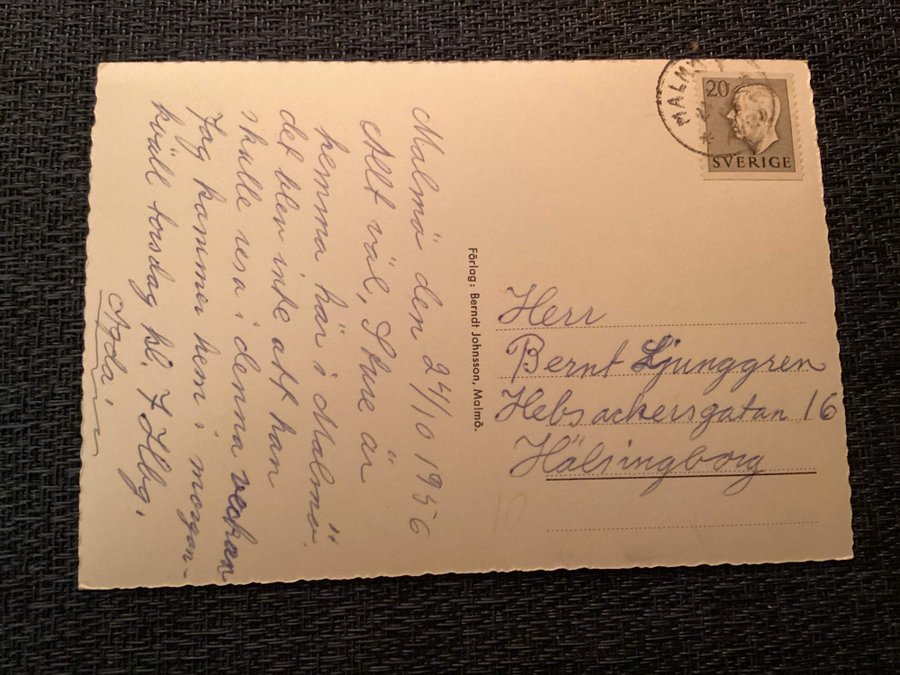 Malmö den 24/10 1956
Allt väl, Sture är
hemma här i Malmö
det blev inte att han
skulle resa i denna veckan
Jag kommer hem i morgon-
kväll torsdag kl. 7 Hbg.
Förlag: Berndt Johnsson, Malmö.
MALMÖ
20
SVERIGE
Herr
Bernt Ljunggren
Hebsackersgatan 16
Hälsingborg